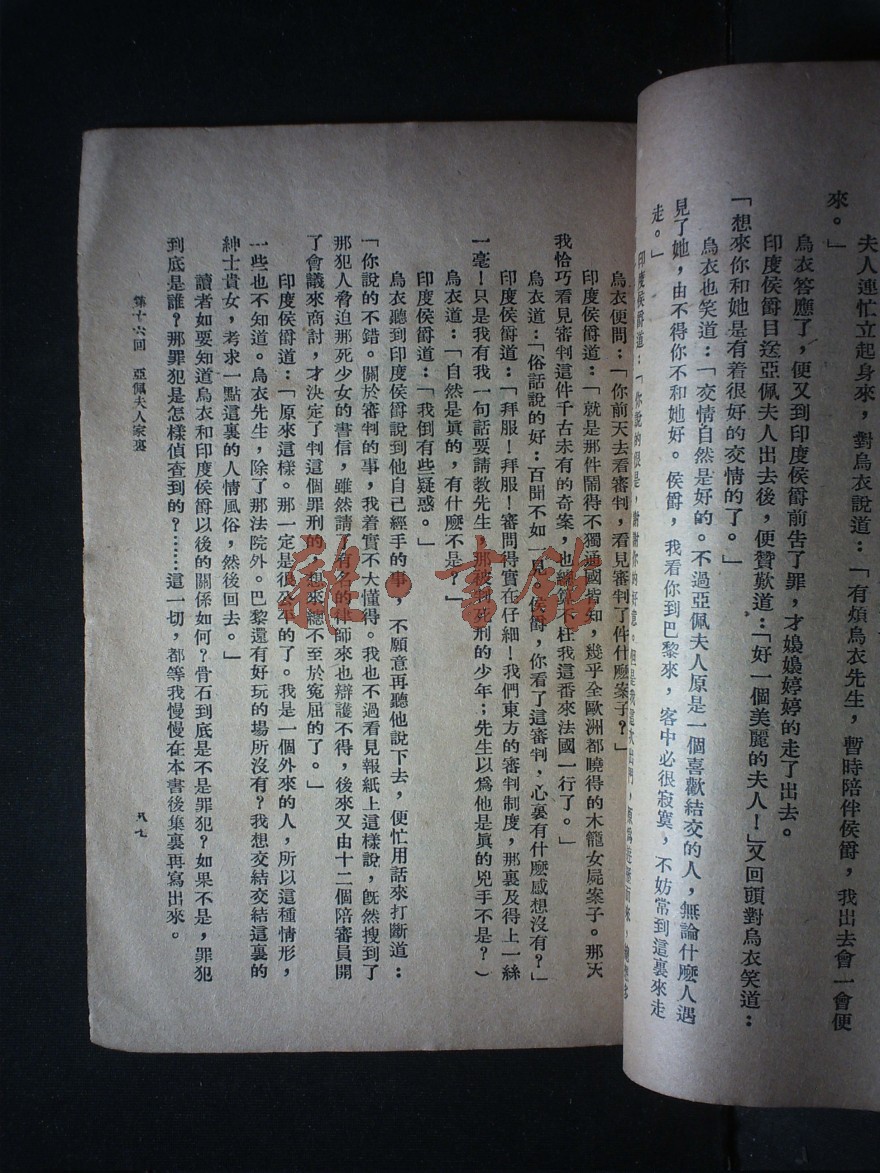 夫人連忙立起身來，對烏衣說道：「有煩烏衣先生，暫時陪伴侯爵，我出去會一會便
來。」
烏衣答應了，便又到印度侯爵前告了罪，才嬝嬝婷婷的走了出去。
印度侯爵目送亞佩夫人出去後，便贊歎道：「好一個美麗的夫人！」又回頭對烏衣笑道：
「想來你和她是有着很好的交情的了。」
烏衣也笑道：「交情自然是好的。不過亞佩夫人原是一個喜歡結交的人，無論什麼人遇
見了她，由不得你不和她好。侯爵，我看你到巴黎來，客中必很寂寞，不妨常到這裏來走
走。」
印度侯爵道：「你說的很是，謝謝你的好意。但是我這次出門，
烏衣便問：「你前天去看審判，看見審判了件什麼案子？」
印度侯爵道：「就是那件鬧得不獨通國皆知，幾乎全歐洲都曉得的木籠女屍案子。那天
我恰巧看見審判這件千古未有的奇案，也總算不枉我這番來法國一行了。」
烏衣道：「俗話說的好：百聞不如一見。侯爵，你看了這審判，心裏有什麼感想沒有？」
印度侯爵道：「拜服！拜服！審問得實在仔細！我們東方的審判制度，那裏及得上一絲
一毫！只是我有我一句話要請教先生，那被判死刑的少年；先生以爲他是眞的兇手不是？）
烏衣道：「自然是眞的，有什麼不是？」
印度侯爵道：「我倒有些疑惑。」
烏衣聽到印度侯爵說到他自己經手的事，不願意再聽他說下去，便忙用話來打斷道：
「你說的不錯。關於審判的事，我着實不大懂得。我也不過看見報紙上這樣說，旣然搜到了
那犯人脅迫那死少女的書信，雖然請了有名的律師來也辯護不得，後來又由十二個陪審員開
了會議來商討，才決定了判這個罪刑的，想來總不至於寃屈的了。」
印度侯爵道：「原來這樣。那一定是很公平的了。我是一個外來的人，所以這種情形，
一些也不知道。烏衣先生，除了那法院外。巴黎還有好玩的場所沒有？我想交結交結這裏的
紳士貴女，考求一點這裏的人情風俗，然後回去。」
讀者如要知道烏衣和印度侯爵以後的關係如何？骨石到底是不是罪犯？如果不是，罪犯
到底是誰？那罪犯是怎樣偵查到的？……這一切，都等我慢慢在本書後集裏再寫出來。
第十六回　亞佩夫人家裏
八七
雜·書館